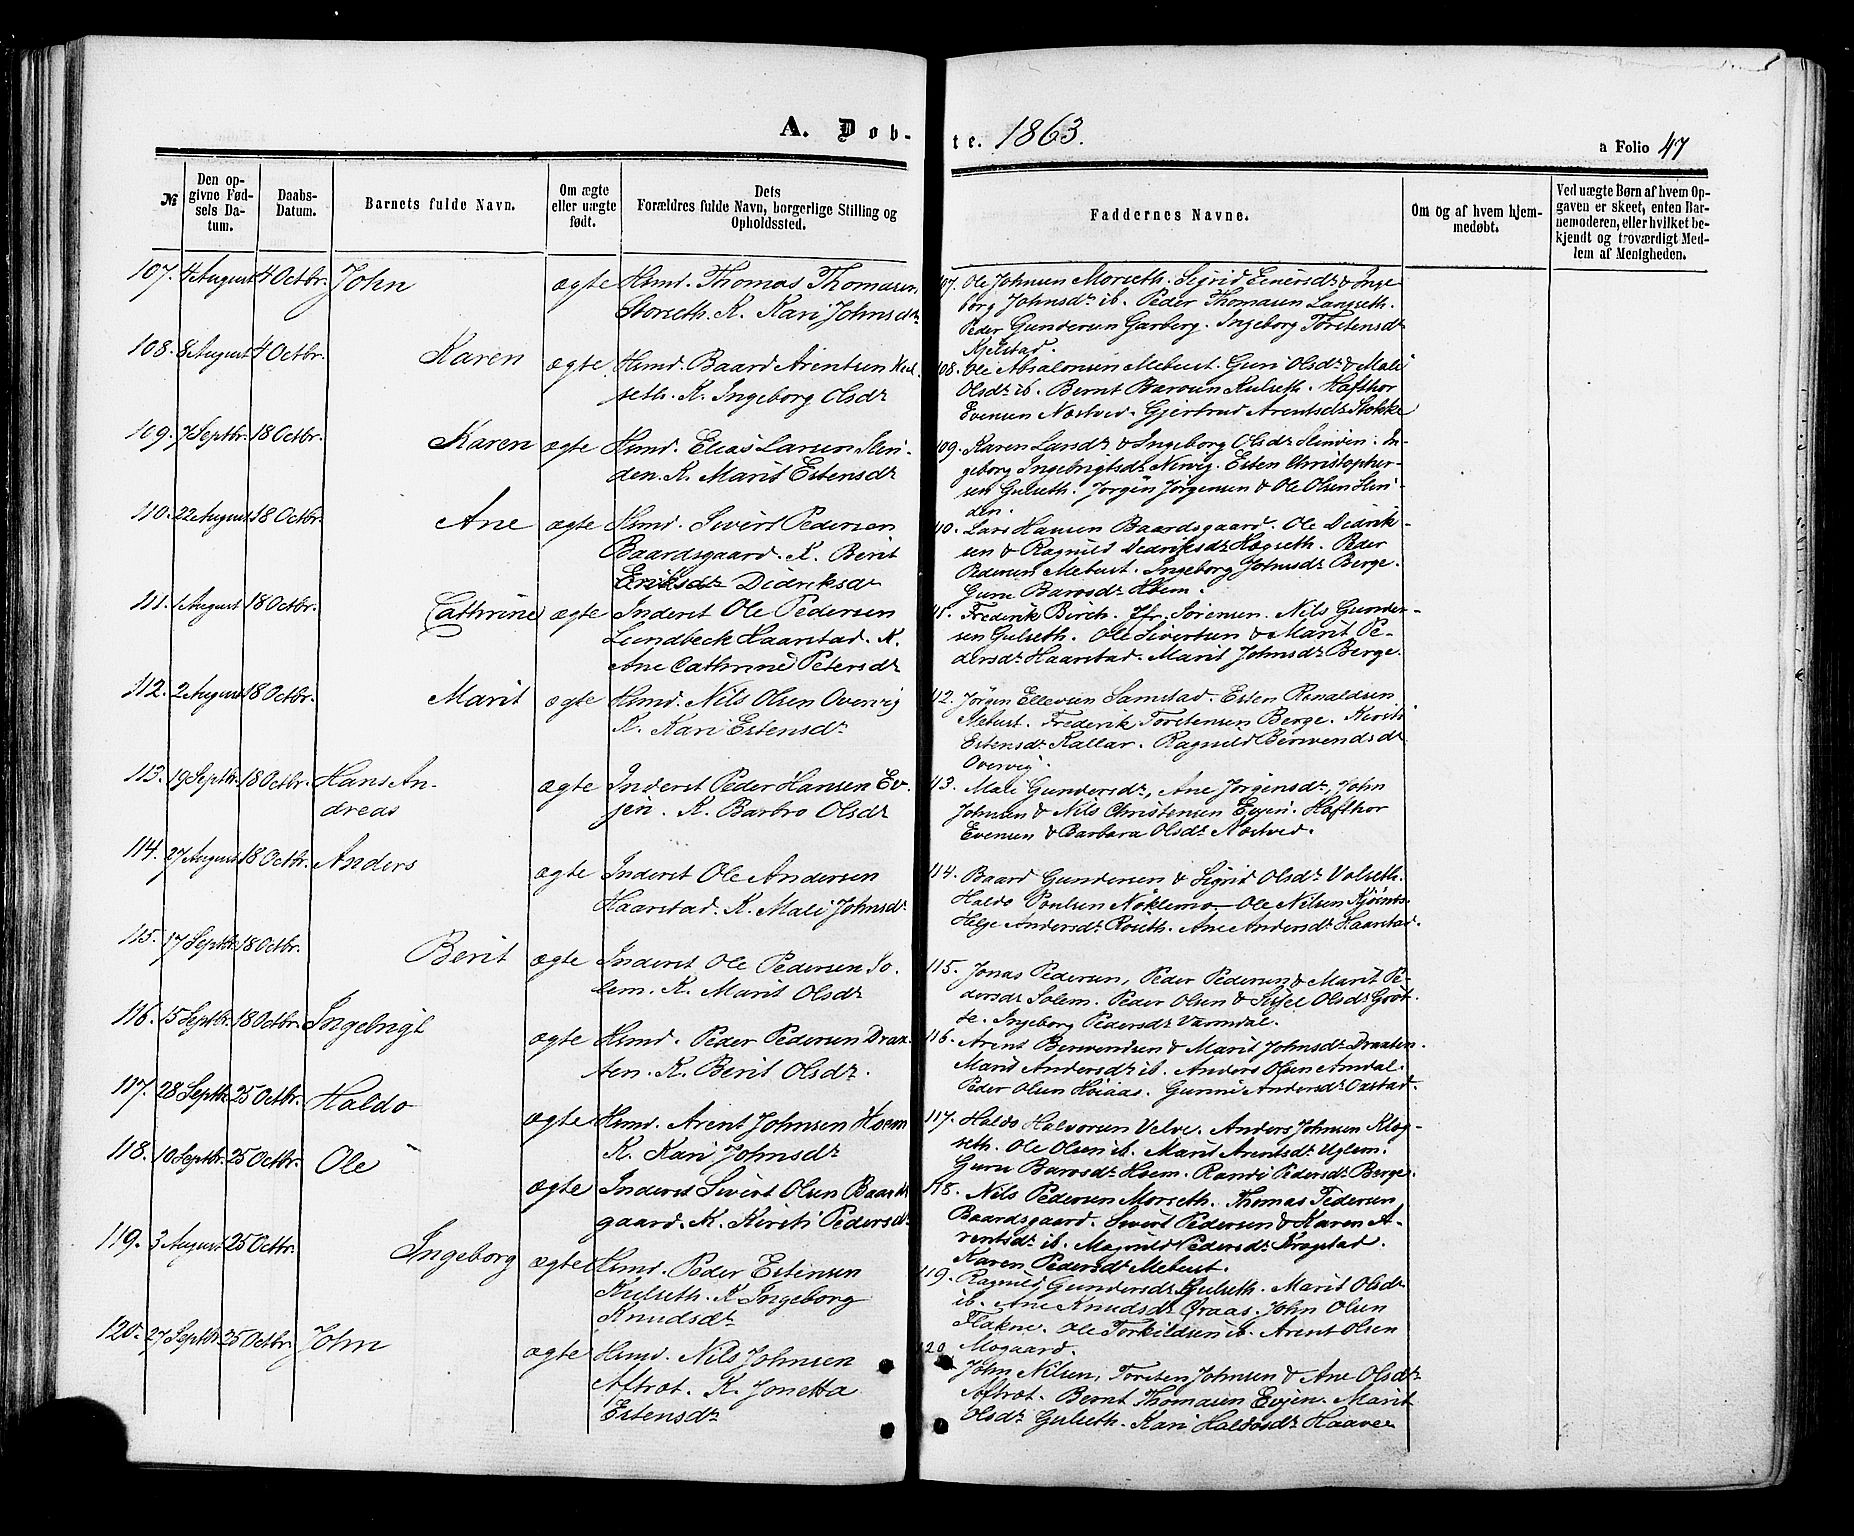 A. Døb-
te. 1863.
a Folio 47
№
Den op-
givne Fød-
sels Da-
tum.
Daabs-
Datum.
Barnets fulde Navn.
Om ægte
eller uægte
født.
Dets
Forældres fulde Navn, borgerlige Stilling og
Opholdssted.
Faddernes Navne.
Om og af hvem hjem-
medøbt.
Ved uægte Børn af hvem Op-
gaven er skeet, enten Bar-
nemoderen, eller hvilket be-
kjendt og troværdigt Med-
lem af Menigheden.
107. 4 August 4 Octbr. John ægte Hsmd. Thomas Thomasen
Storseth. K. Kari Johnsdr
107. Ole Johnsen Morseth. Sigrid Einersdr & Inge
borg Johnsdr ib. Peder Thomasen Langseth.
Peder Gundersen Garberg. Ingeborg Torstensdr
Kjelstad.
108. 8 August 4 Octbr. Karen ægte Hsmd. Baard Arentsen Kul-
seth. K. Ingeborg Olsdr
108. Ole Absalonsen Mebust. Guri Olsdr & Mali
Olsdr ib. Bernt Baroen Kulseth. Hafthor
Evensen Næstved. Gjertrud Arentsdr Stokke
109. 7 Septbr. 18 Octbr. Karen ægte Hsmd. Elias Larsen Slin-
den. K. Marit Estensdr
109. Karen Larsdr & Ingeborg Olsdr Slinden. In-
geborg Ingebrigtsdr Nervig. Esten Christopher-
sen Gulseth. Jørgen Jørgensen & Ole Olsen Slin-
den.
110. 22 August 18 Octbr. Ane ægte Hsmd. Sivert Pedersen
Baardsgaard. K. Berit
Eriksdr Didriksdr
110. Lars Hansen Baardsgaard. Ole Didrik-
sen & Ragnild Dedriksdr Høgseth. Peder
Pedersen Mebust. Ingeborg Johnsdr Berge.
Guru Baroesdr Hoem.
111. 1 August 18 Octbr. Cathrine ægte Inderst Ole Pedersen
Lundbeck Haarstad. K.
Ane Cathrine Petersdr
111. Frederik Birch. Jfr. Sörensen. Nils Gunder-
sen Gulseth. Ole Sivertsen & Marit Pe-
dersdr Haarstad. Marit Johnsdr Berge.
112. 2 August 18 Octbr. Marit ægte Hsmd. Nils Olsen Overvig
K. Kari Estensdr
112. Jørgen Ellevsen Samstad. Esten Renaldsen
Mebust. Frederik Torstensen Berge. Kirsti
Estensdr Kallar. Ragnild Berwendsdr
Overvig.
113. 19 Septbr. 18 Octbr. Hans An-
dreas ægte Inderst Peder Hansen Ev-
jen. K. Barbro Olsdr
113. Mali Gundersdr, Ane Jørgensdr, John
Johnsen & Nils Christensen Evjen. Hafthor
Evensen & Barbara Olsdr Næstved.
114. 27 August 18 Octbr. Anders ægte Inderst Ole Andersen
Haarstad. K. Mali Johnsdr
114. Baard Gundersen & Sigrid Olsdr Volseth.
Haldo Poulsen Nöklemo. Ole Nilsen Kjösnæs.
Helge Andersdr Roseth. Ane Andersdr Haarstad.
115. 17 Septbr. 18 Octbr. Berit ægte Inderst Ole Pedersen So-
lem. K. Marit Olsdr
115. Jonas Pedersen, Peder Pedersen & Marit Pe-
dersdr Solem. Peder Olsen & Sifel Olsdr Gröt-
te. Ingeborg Pedersdr Varmdal.
116. 15 Septbr. 18 Octbr. Ingebrigt ægte Hsmd. Peder Pedersen Draa-
ten. K. Berit Olsdr.
116. Arent Berwendsen & Marit Johnsdr Draaten.
Marit Andersdr ib. Anders Olsen Amdal.
Peder Olsen Høiaas. Gunni Andersdr Oustad.
117. 28 Septbr. 25 Octbr. Haldo ægte Hsmd. Arent Johnsen Hoem
K. Kari Johnsdr
117. Haldo Halvorsen Velve. Anders Johnsen Kløg-
seth. Ole Olsen ib. Marit Arentsdr Uglem.
Guru Baroesdr Hoem. Randi Pedersdr Berge.
118. 10 Septbr. 25 Octbr. Ole ægte Inderst Sivert Olsen Baards
gaard. K. Kirsti Pedersdr
118. Nils Pedersen Morseth. Thomas Pedersen
Baardsgaard. Sivert Pedersen & Karen A-
rentsdr ib. Magnild Pedersdr Krogstad.
Karen Pedersdr Mebust.
119. 3 August 25 Octbr. Ingeborg ægte Hsmd. Peder Estensen
Kulseth. K. Ingeborg
Knudsdr
119. Ragnild Gundersdr Gulseth. Marit Olsdr
ib. Ane Knudsdr Øraas. John Olsen
Flakne. Ole Torkildsen ib. Arent Olsen
Mogaard.
120. 27 Septbr. 25 Octbr. John ægte Hsmd. Nils Johnsen
Aftrøt. K. Jonetta
Estensdr
120. John Nilsen, Torsten Johnsen & Ane Olsdr
Aftrøt. Bernt Thomasen Evjen. Marit
Olsdr Gulseth. Kari Haldosdr Haaven